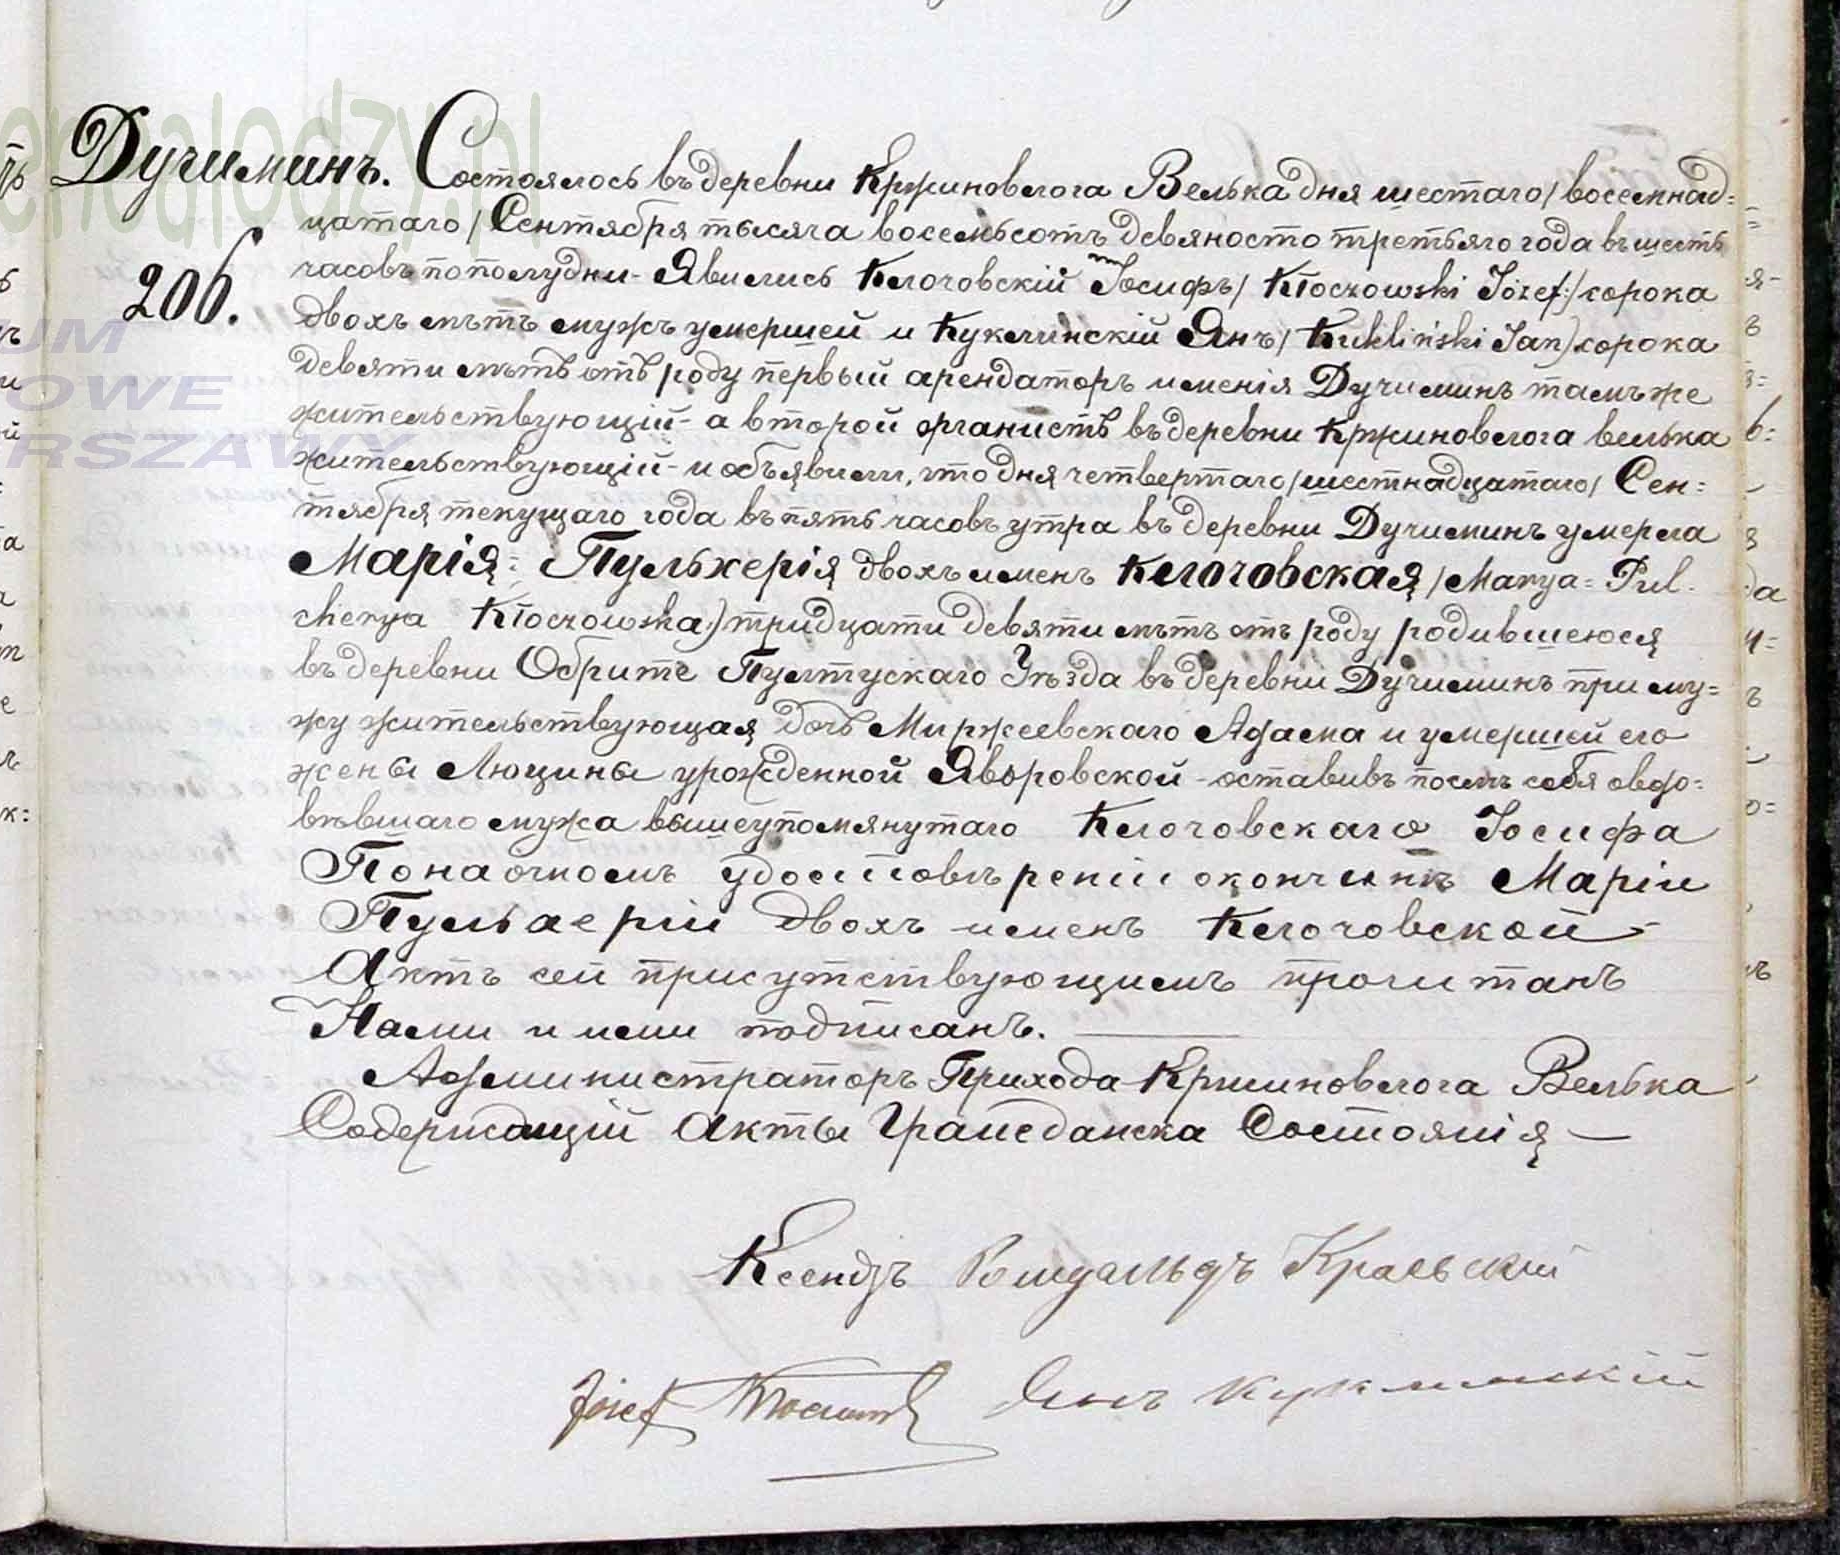 Дучиминъ. Состоялось въ деревни Кржиновлога Велька дня шестаго / восемнад=
206. цатаго / Сентября тысяча восемьсотъ девяносто третьяго года въ шесть
часовъ по полудни - Явились Клочовскій Іосифъ / Kłoczowski Józef:/ сорока
двохъ лѣтъ мужъ умершей и Куклинскій Янъ / Kukliński Jan) сорока
девяти лѣтъ отъ роду первый арендаторъ именія Дучиминъ тамъ же
жительствующій - а второй органистъ въ деревни Кржиновлога велька
жительствующій - и объявили, что дня четвертаго / шестнадцатаго / Сен=
тября текущаго года въ пять часовъ утра въ деревни Дучиминъ умерла
Марія= Пульхерія двохъ именъ Клочовская / Marya= Pul-
cherya Kłoczowska) тридцати девяти лѣтъ отъ роду родившеюся
въ деревни Обрите Пултускаго Уѣзда въ деревни Дучиминъ при му=
жу жительствующая дочь Миржеевскаго Адама и умершей его
жены Люцины урожденной Яворовской - оставивъ послѣ себя овдо=
вѣвшаго мужа вышеупомянутаго Клочовскаго Іосифа
По наочномъ удостовѣреніи о кончинѣ Маріи
Пульхеріи двохъ именъ Клочовской -
Актъ сей присутствующимъ прочитанъ
Нами и ими подписанъ.
Администраторъ Прихода Кржиновлога Велька
Содержащій Акты Гражданска Состоянія —
Ксендзъ Ромуальдъ Краевскій
Józef Kłoczowski Янъ Куклинскій
genealodzy.pl
UM
OWE
RSZAWY